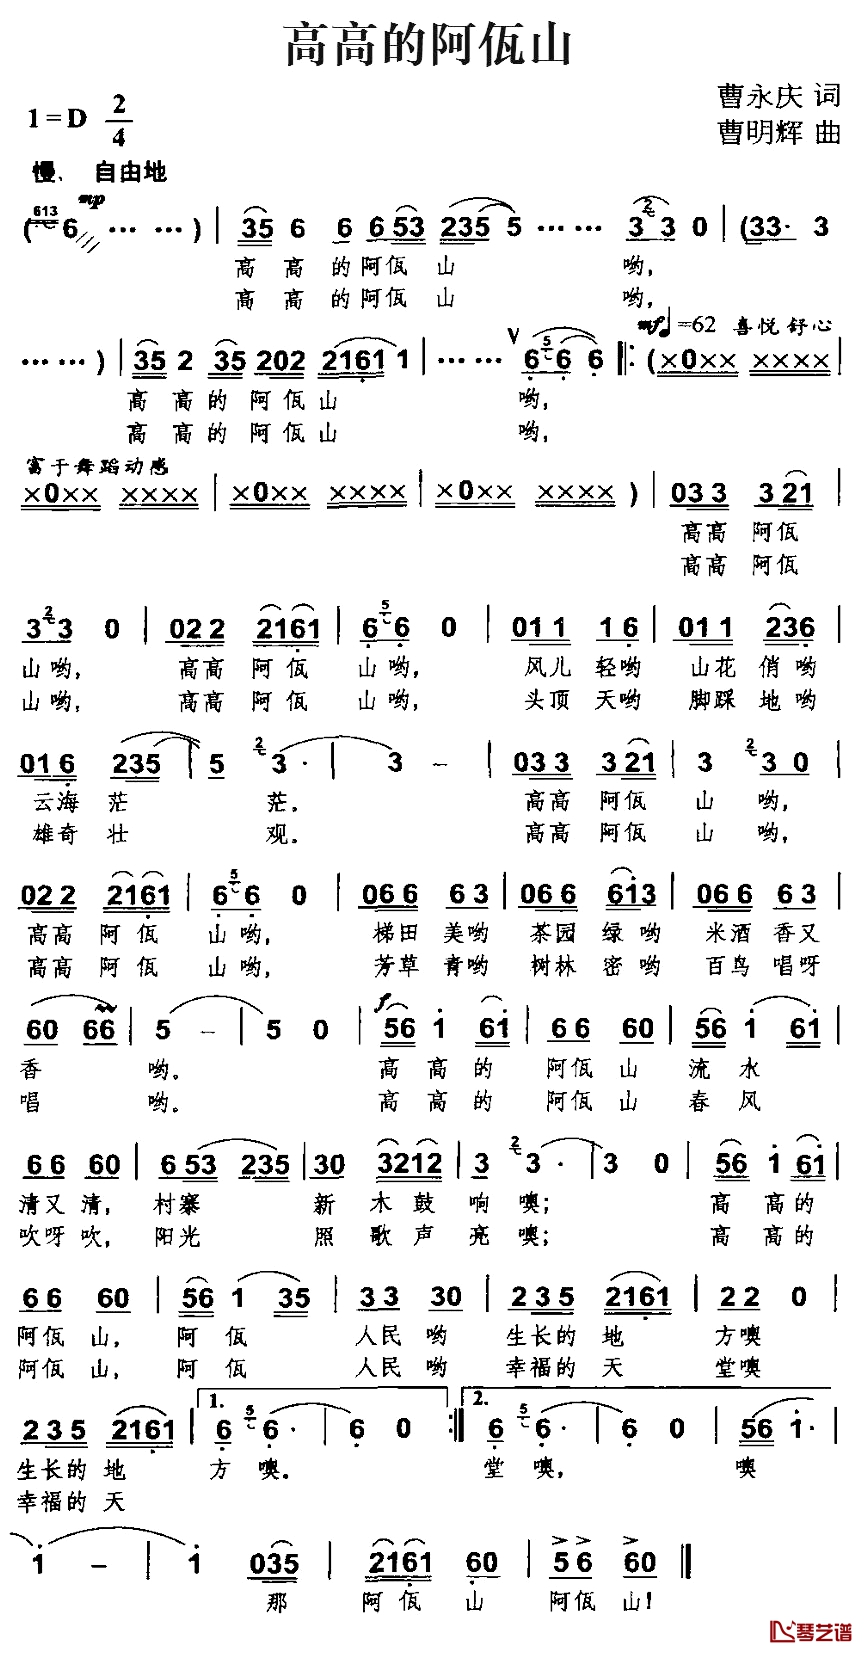 高高的阿佤山
曹永庆 词
1=D 2/4
曹明辉 曲
慢、 自由地
mp
(613 6 ··· ···) | 35 6 6 653 235 5 ··· ··· 2 3 3 0 | (33· 3
高 高 的 阿 佤 山 哟,
高 高 的 阿 佤 山 哟,
mf ♩=62 喜悦 舒心
··· ···) | 35 2 35 202 2161 1 | ··· ··· V 6 5 6 6 ‖: (×0×× ×××× |
高 高 的 阿 佤 山 哟,
高 高 的 阿 佤 山 哟,
富于舞蹈动感
×0×× ×××× | ×0×× ×××× | ×0×× ×××× ) | 033 321 |
高高 阿佤
高高 阿佤
3 2 3 0 | 022 2161 | 6 5 6 0 | 011 16 | 011 236 |
山哟, 高高 阿佤 山哟, 风儿 轻哟 山花 俏哟
山哟, 高高 阿佤 山哟, 头顶 天哟 脚踩 地哟
016 235 | 5 2 3· | 3 – | 033 321 | 3 2 3 0 |
云海 茫 茫。 高高 阿佤 山 哟,
雄奇 壮 观。 高高 阿佤 山 哟,
022 2161 | 6 5 6 0 | 066 63 | 066 613 | 066 63 |
高高 阿佤 山哟, 梯田 美哟 茶园 绿哟 米酒 香又
高高 阿佤 山哟, 芳草 青哟 树林 密哟 百鸟 唱呀
f
60 66 | 5 – | 5 0 | 56 1 61 | 66 60 | 56 1 61 |
香 哟。 高 高 的 阿佤 山 流 水
唱 哟。 高 高 的 阿佤 山 春 风
66 60 | 653 235 | 30 3212 | 3 2 3· | 3 0 | 56 1 61 |
清又 清, 村寨 新 木 鼓 响 噢; 高 高 的
吹呀 吹, 阳光 照 歌 声 亮 噢; 高 高 的
66 60 | 56 1 35 | 33 30 | 235 2161 | 22 0 |
阿佤 山, 阿 佤 人民 哟 生长的 地 方噢
阿佤 山, 阿 佤 人民 哟 幸福的 天 堂噢
235 2161 | 1. 6 5 6· | 6 0 :‖ 2. 6 5 6· | 6 0 | 56 1· |
生长的 地 方 噢。 堂 噢, 噢
幸福的 天
1 – | 1 035 | 2161 60 | 56 60 ‖
那 阿 佤 山 阿佤 山!
琴艺谱